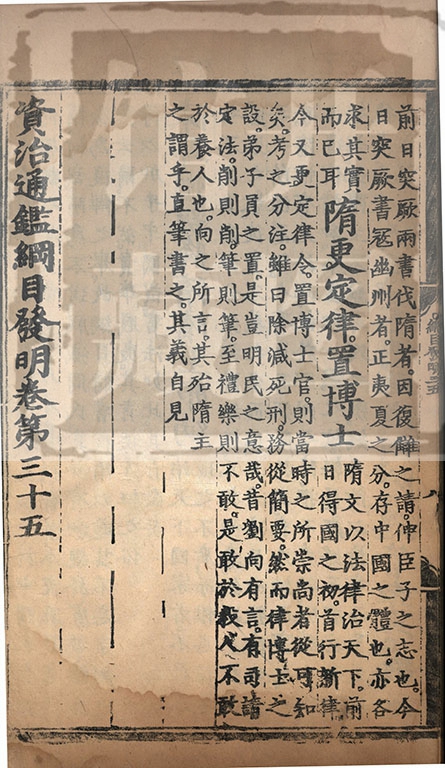 前日突厥兩書伐隋者因復讎之請伸臣子之志也今
日突厥書寇幽州者正夷夏之分存中國之體也亦各
求其實
而已耳
隋更定律置博士
隋文以法律治天下前
日得國之初首行新律
今又更定律令置博士官則當時之所崇尚者從可知
矣考之分注雖曰除減死刑務從簡要然而律博士之
設弟子員之置是豈明民之意哉昔劉向有言有司請
定法削則削筆則筆至禮樂則不敢是敢於殺人不敢
於養人也向之所言其殆隋主
之謂乎直筆書之其義自見
資治通鑑綱目發明卷第三十五